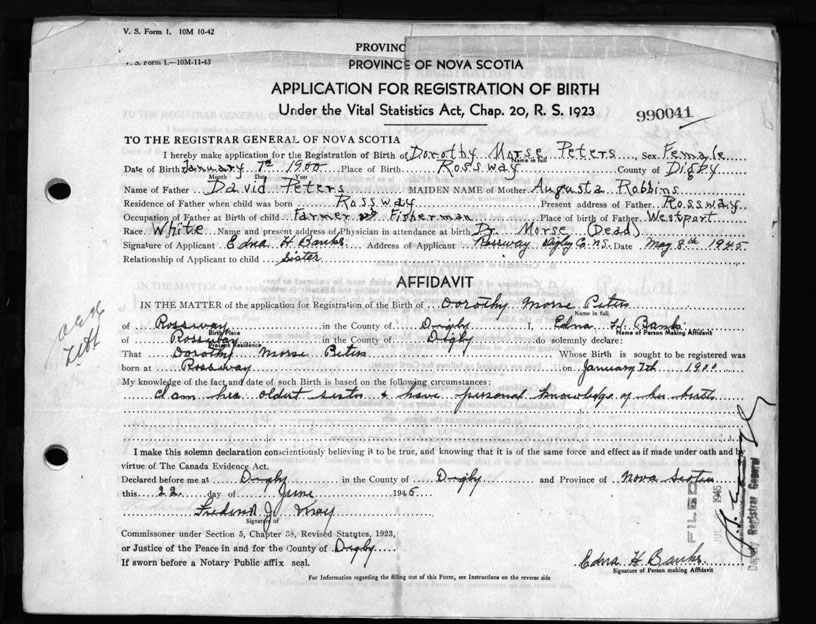 V. S. Form 1. 10M 10-42
PROVINC
V. S. Form 1.—10M-11-43
PROVINCE OF NOVA SCOTIA
APPLICATION FOR REGISTRATION OF BIRTH
Under the Vital Statistics Act, Chap. 20, R. S. 1923
990041
TO THE REGISTRAR GENERAL OF NOVA SCOTIA
I hereby make application for the Registration of Birth of Dorothy Morse Peters, Sex Female
Name in full
Date of Birth January 7th 1900 Place of Birth Rossway County of Digby
Month Date Year
Name of Father David Peters MAIDEN NAME of Mother Augusta Robbins
Residence of Father when child was born Rossway Present address of Father Rossway
Occupation of Father at Birth of child Farmer Fisherman Place of birth of Father Westport
Race White Name and present address of Physician in attendance at birth Dr. Morse (Dead)
Signature of Applicant Edna H Banks Address of Applicant Rossway Digby Co. N.S. Date May 8th 1945
Relationship of Applicant to child Sister
AFFIDAVIT
IN THE MATTER of the application for Registration of the Birth of Dorothy Morse Peters
Name in full
of Rossway in the County of Digby I, Edna H. Banks
Birth Place Name of Person Making Affidavit
of Rossway in the County of Digby do solemnly declare:
Present Residence
That Dorothy Morse Peters Whose Birth is sought to be registered was
born at Rossway on January 7th 1900
My knowledge of the fact and date of such Birth is based on the following circumstances:
I am her oldest sister & have personal knowledge of her birth
I make this solemn declaration conscientiously believing it to be true, and knowing that it is of the same force and effect as if made under oath and by
virtue of The Canada Evidence Act.
Declared before me at Digby in the County of Digby and Province of Nova Scotia
this 22 day of June 1945
Frederick J. May
Signature of
Commissoner under Section 5, Chapter 38, Revised Statutes, 1923,
or Justice of the Peace in and for the County of Digby
If sworn before a Notary Public affix seal.
Edna H Banks
Signature of Person making Affidavit
For Information regarding the filling out of this Form, see Instructions on the reverse side
FILED
1945
Deputy Registrar General